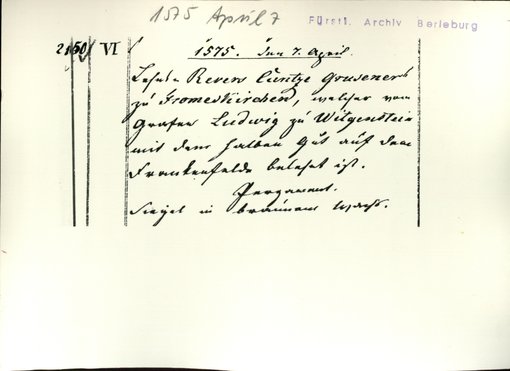 1575 April 7
Fürstl. Archiv Berleburg
2150 VI
1575. den 7. April.
Lehn-Revers Cuntze Gruseners
zu Fromeskirchen, welcher vom
Grafen Ludwig zu Witgenstein
mit dem halben Gut auf dem
Frankenfelde belehnt ist.
Pergament.
Siegel in braunem Wachs.